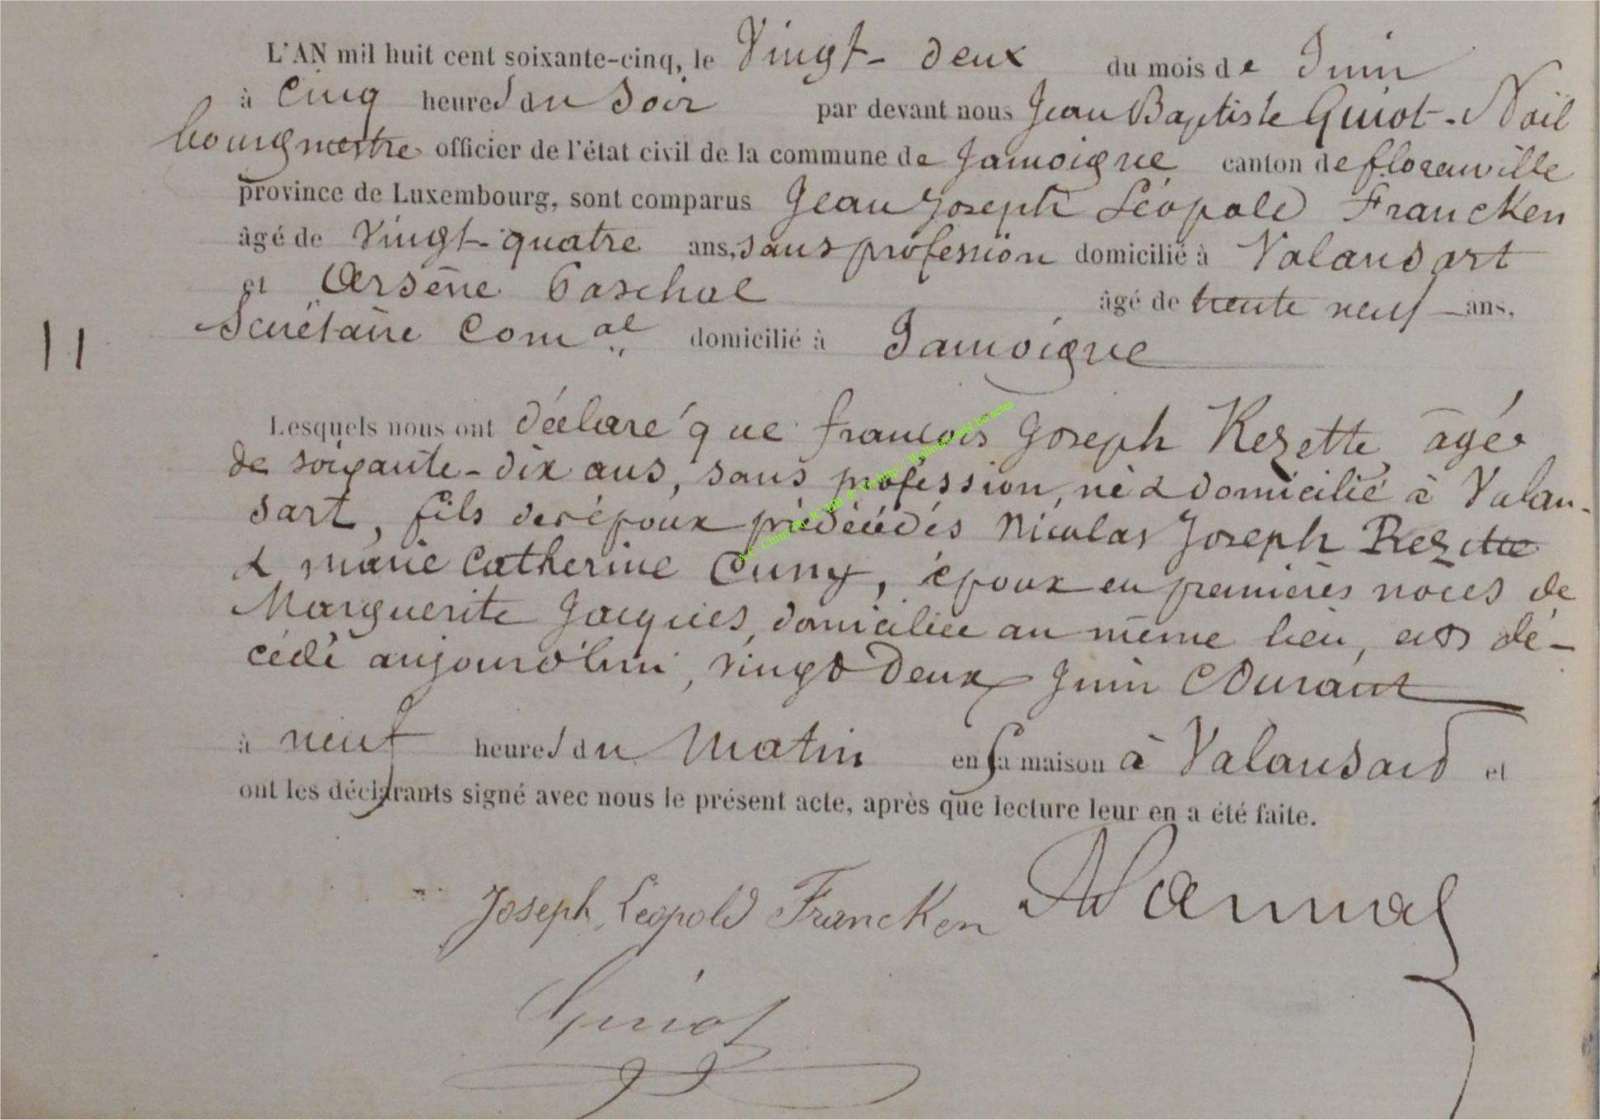 L'AN mil huit cent soixante-cinq, le Vingt-deux du mois de Juin
à Cinq heures du Soir par devant nous Jean Baptiste Guiot-Noël
bourgmestre officier de l'état civil de la commune de Jamoigne canton de florenville
province de Luxembourg, sont comparus Jean Joseph Léopold Francken
âgé de Vingt-quatre ans, sans profession domicilié à Valansart
et Arsène Paschal âgé de trente neuf ans,
Secrétaire Comal domicilié à Jamoigne
11
Lesquels nous ont déclaré que françois Joseph Rezette âgé
de soixante-dix ans, sans profession, né & domicilié à Valan-
sart, fils des époux prédécédés Nicolas Joseph Rezette
& marie Catherine Cuny, époux en premières noces de
Marguerite Jacques, domiciliée au même lieu, est dé-
cédé aujourd'hui, vingt deux Juin Courant
à neuf heures du Matin en sa maison à Valansard et
ont les déclarants signé avec nous le présent acte, après que lecture leur en a été faite.
Joseph Léopold Francken
Guiot